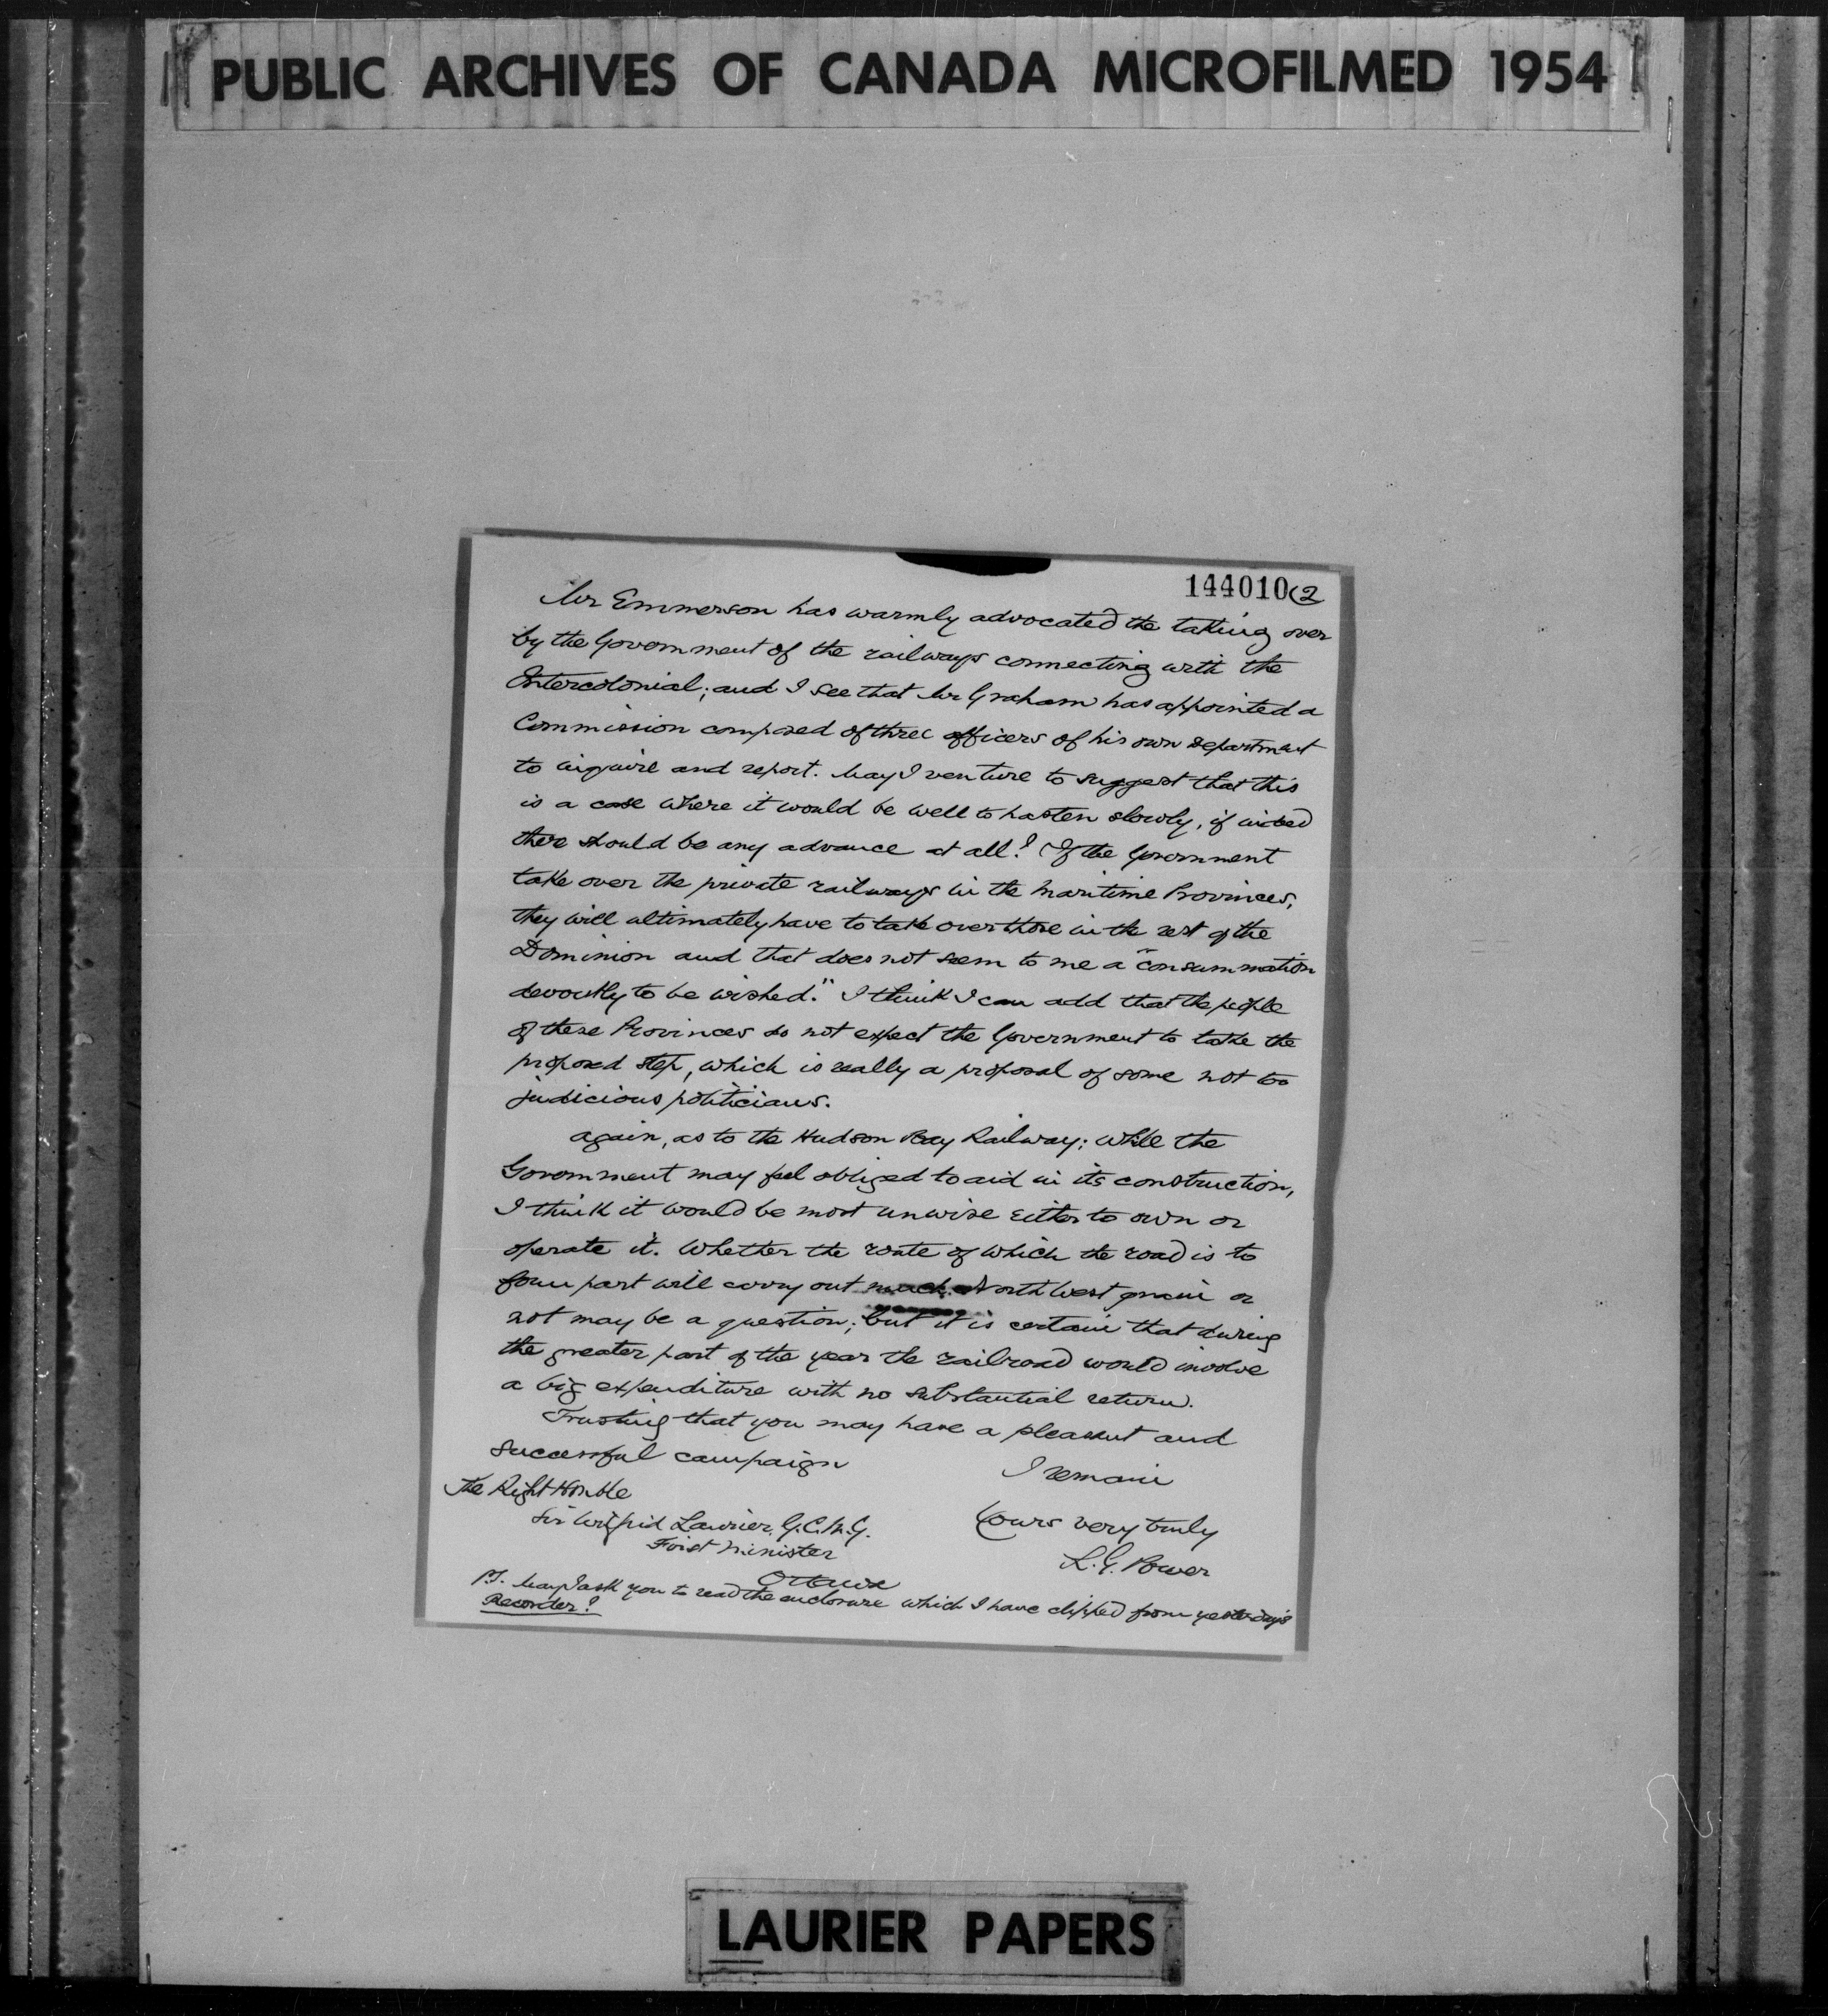 PUBLIC ARCHIVES OF CANADA MICROFILMED 1954
144010 (2
Mr Emmerson has warmly advocated the taking over
by the Government of the railways connecting with the
Intercolonial; and I see that Mr Graham has appointed a
Commission composed of three officers of his own Department
to inquire and report. May I venture to suggest that this
is a case where it would be well to hasten slowly, if indeed
there should be any advance at all? If the Government
take over the private railways in the Maritime Provinces,
they will ultimately have to take over those in the rest of the
Dominion and that does not seem to me a "consummation
devoutly to be wished." I think I can add that the people
of these Provinces do not expect the Government to take the
proposed step, which is really a proposal of some not too
judicious politicians.
Again, as to the Hudson Bay Railway; while the
Government may feel obliged to aid in its construction,
I think it would be most unwise either to own or
operate it. Whether the route of which the road is to
form part will carry out much North West grain or
not may be a question; but it is certain that during
the greater part of the year the railroad would involve
a big expenditure with no substantial return.
Trusting that you may have a pleasant and
successful campaign
I remain
The Right Honble
Sir Wilfrid Laurier, G.C.M.G.
Yours very truly
First Minister
L. G. Power
Ottawa
P.S. May I ask you to read the enclosure which I have clipped from yesterday's
Recorder?
LAURIER PAPERS